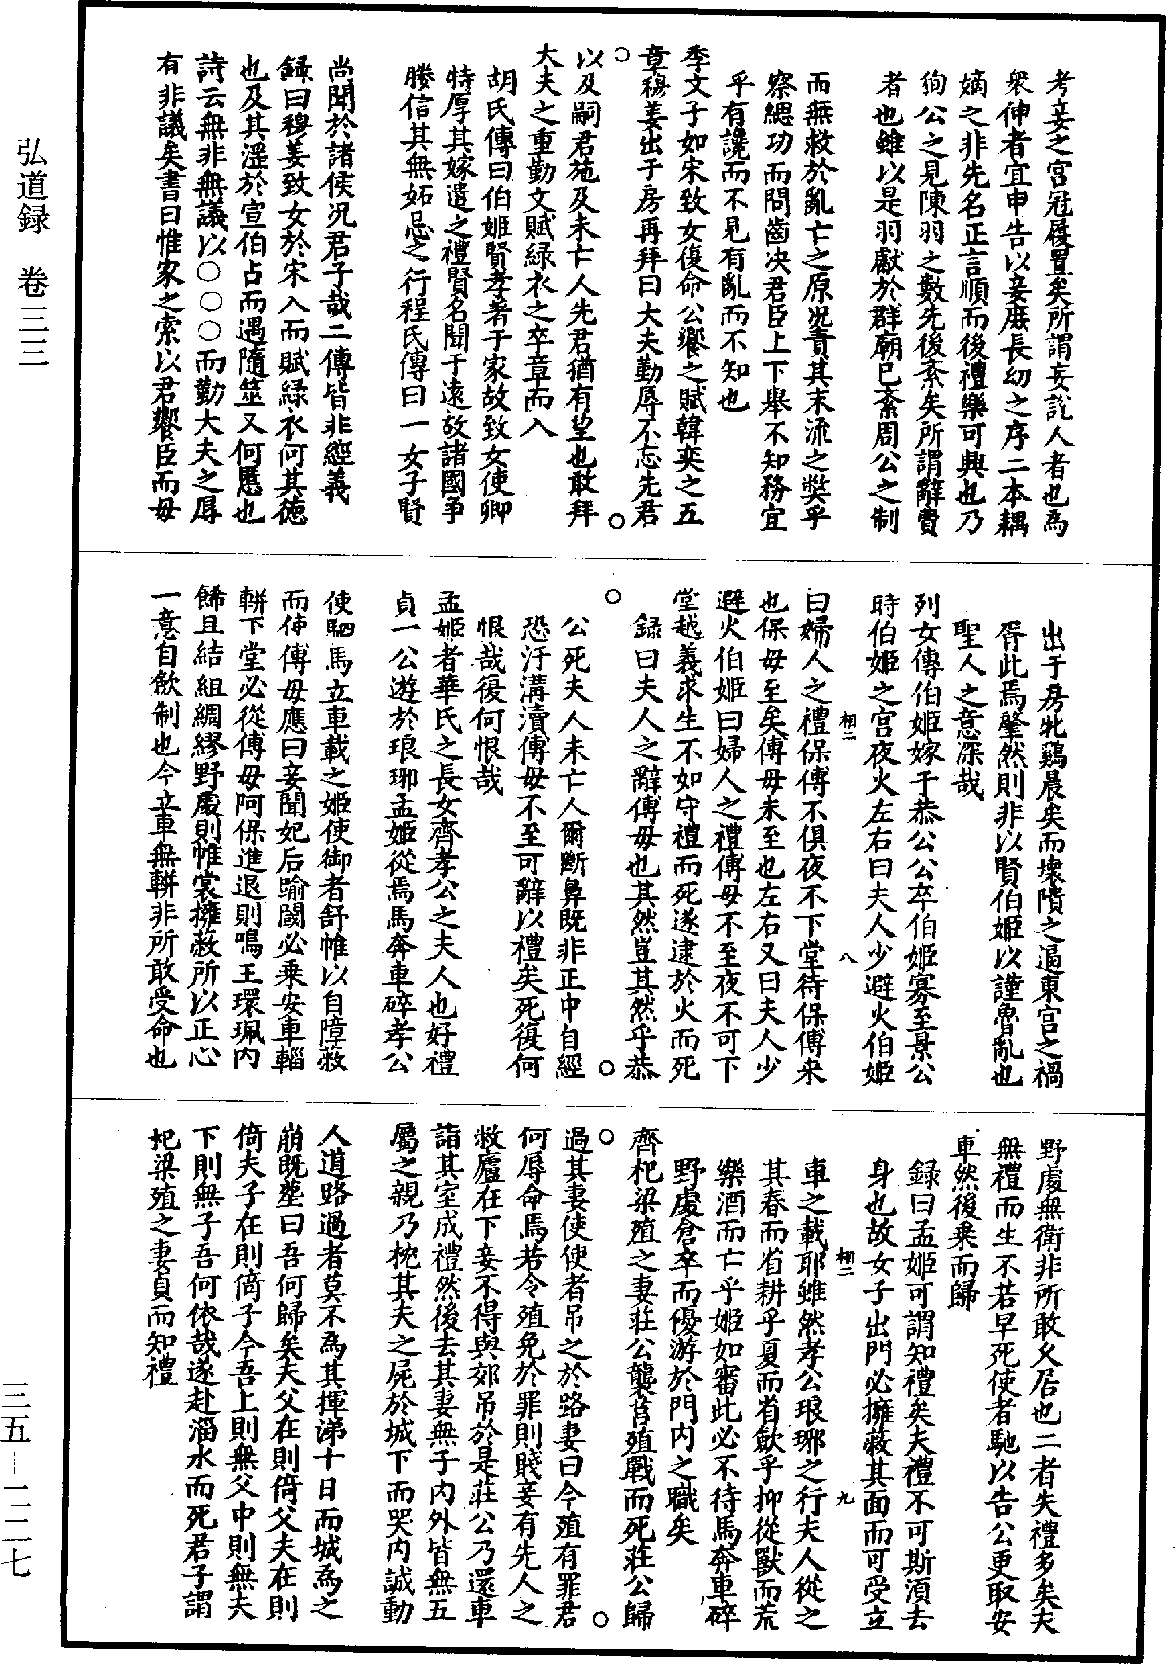 考妾之宮冠屨置矣所謂妄說人者也為
衆仲者宜申告以妾庶長幼之序二本耦
嫡之非先名正言順而後禮樂可興也乃
徇公之見陳羽之數先後紊矣所謂辭費
者也雖以是羽獻於群廟已紊周公之制
而無救於亂亡之原况責其末流之獘乎
察緦功而問齒决君臣上下舉不知務宜
乎有讒而不見有亂而不知也
季文子如宋致女復命公饗之賦韓奕之五
章穆姜出于房再拜曰大夫勤辱不忘先君
以及嗣君施及未亡人先君猶有望也敢拜
大夫之重勤文賦綠衣之卒章而入
胡氏傳曰伯姬賢孝著于家故致女使卿
特厚其嫁遣之禮賢名聞于遠故諸國爭
媵信其無妬忌之行程氏傳曰一女子賢
尚聞於諸侯况君子哉二傳皆非經義
錄曰穆姜致女於宋入而賦綠衣何其德
也及其淫於宣伯占而遇隨筮又何慝也
詩云無非無議以○○○而勤大夫之辱
有非議矣書曰惟家之索以君饗臣而母
出于房牝鷄晨矣而壞隤之逼東宮之禍
胥此焉肇然則非以賢伯姬以謹魯亂也
聖人之意深哉
列女傳伯姬嫁于恭公公卒伯姬寡至景公
時伯姬之宮夜火左右曰夫人少避火伯姬
曰婦人之禮保傅不俱夜不下堂待保傅來
也保母至矣傅母未至也左右又曰夫人少
避火伯姬曰婦人之禮傅母不至夜不可下
堂越義求生不如守禮而死遂逮於火而死
錄曰夫人之辭傅母也其然豈其然乎恭
公死夫人未亡人爾斷鼻既非正中自經
恐汙溝瀆傅母不至可辭以禮矣死復何
恨哉復何恨哉
孟姬者華氏之長女齊孝公之夫人也好禮
貞一公遊於琅琊孟姬從焉馬奔車碎孝公
使駟馬立車載之姬使御者舒帷以自障蔽
而使傅母應曰妾聞妃后踰閾必乘安車輜
軿下堂必從傅母阿保進退則鳴玉環珮內
餙且結組綢繆野處則帷裳擁蔽所以正心
一意自歛制也今立車無軿非所敢受命也
野處無衛非所敢久居也二者失禮多矣夫
無禮而生不若早死使者馳以告公更取安
車然後乘而歸
錄曰孟姬可謂知禮矣夫禮不可斯湏去
身也故女子出門必擁蔽其面而可受立
車之載耶雖然孝公琅琊之行夫人從之
其春而省耕乎夏而省歛乎抑從獸而荒
樂酒而亡乎姬如審此必不待馬奔車碎
野處倉卒而優游於門内之職矣
齊杞梁殖之妻莊公襲莒殖戰而死莊公歸
過其妻使使者弔之於路妻曰今殖有罪君
何辱命焉若令殖免於罪則賤妾有先人之
敝廬在下妾不得與郊吊於是莊公乃還車
詣其室成禮然後去其妻無子内外皆無五
屬之親乃枕其夫之屍於城下而哭内諴動
人道路過者莫不為其揮涕十日而城為之
崩既塟曰吾何歸矣夫父在則倚父夫在則
倚夫子在則倚子今吾上則無父中則無夫
下則無子吾何依哉遂赴淄水而死君子謂
杞梁殖之妻貞而知禮
相二
八
相二
九
弘道録　卷三三
三五-一二七